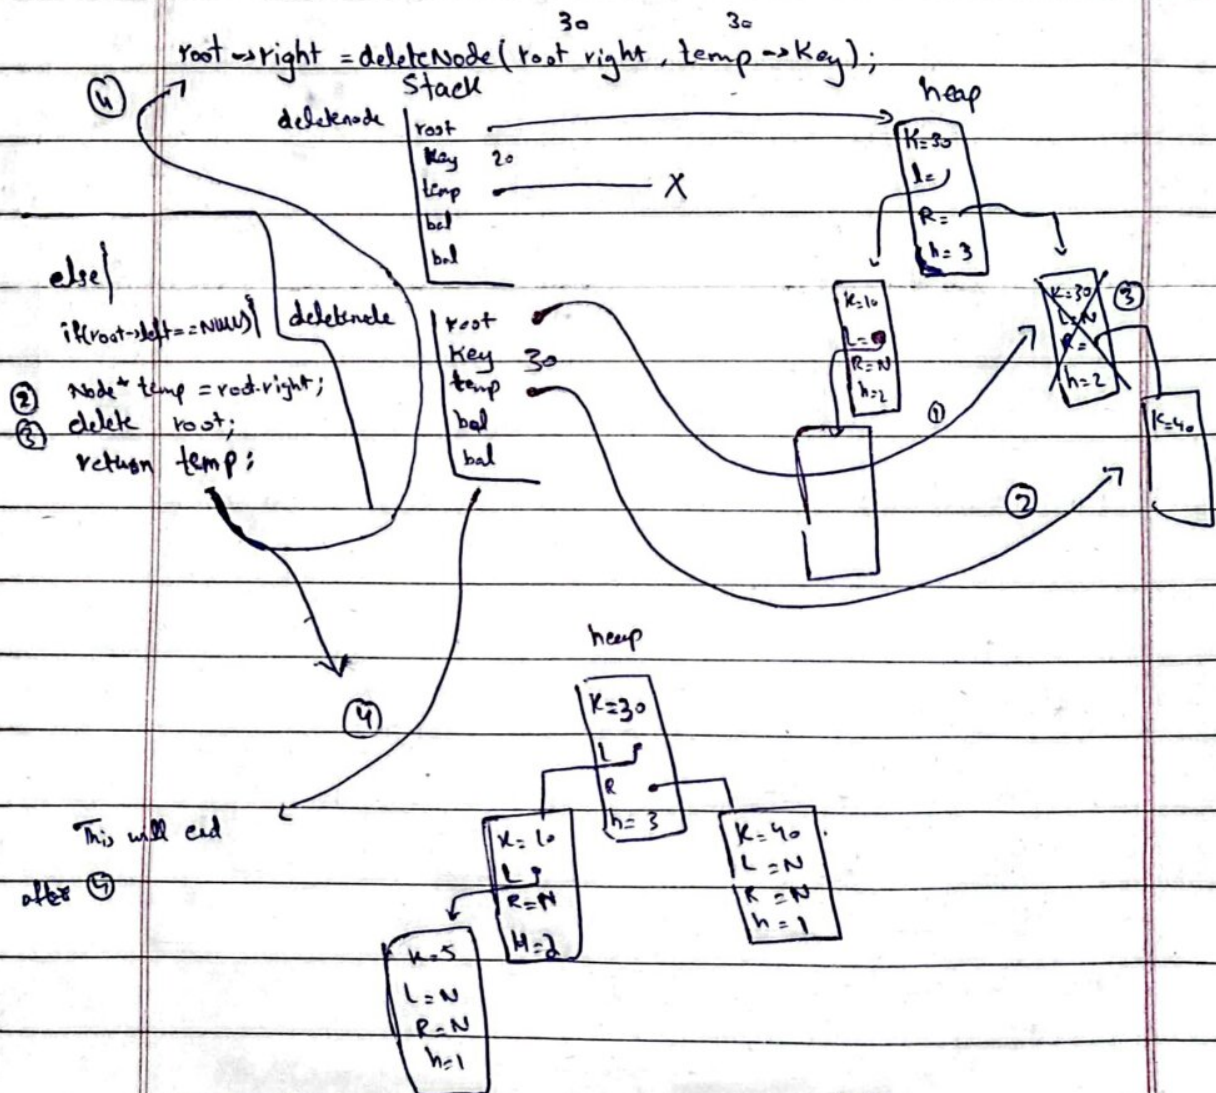 30 30
root->right = deleteNode(root right, temp->Key);
④
Stack
heap
deletenode
root
Key 20
temp X
bal
bal
K=30
l=
R=
h=3
K=10
L=
R=N
h=2
K=30
L=N
R=
h=2
③
K=40
else{
if(root->left==NULL){
② Node* temp = root.right;
③ delete root;
return temp;
deletenode
root
Key 30
temp
bal
bal
①
②
④
This will end
after ④
heap
K=30
L
R
h=3
K=10
L
R=N
H=2
K=40
L=N
R=N
h=1
K=5
L=N
R=N
h=1